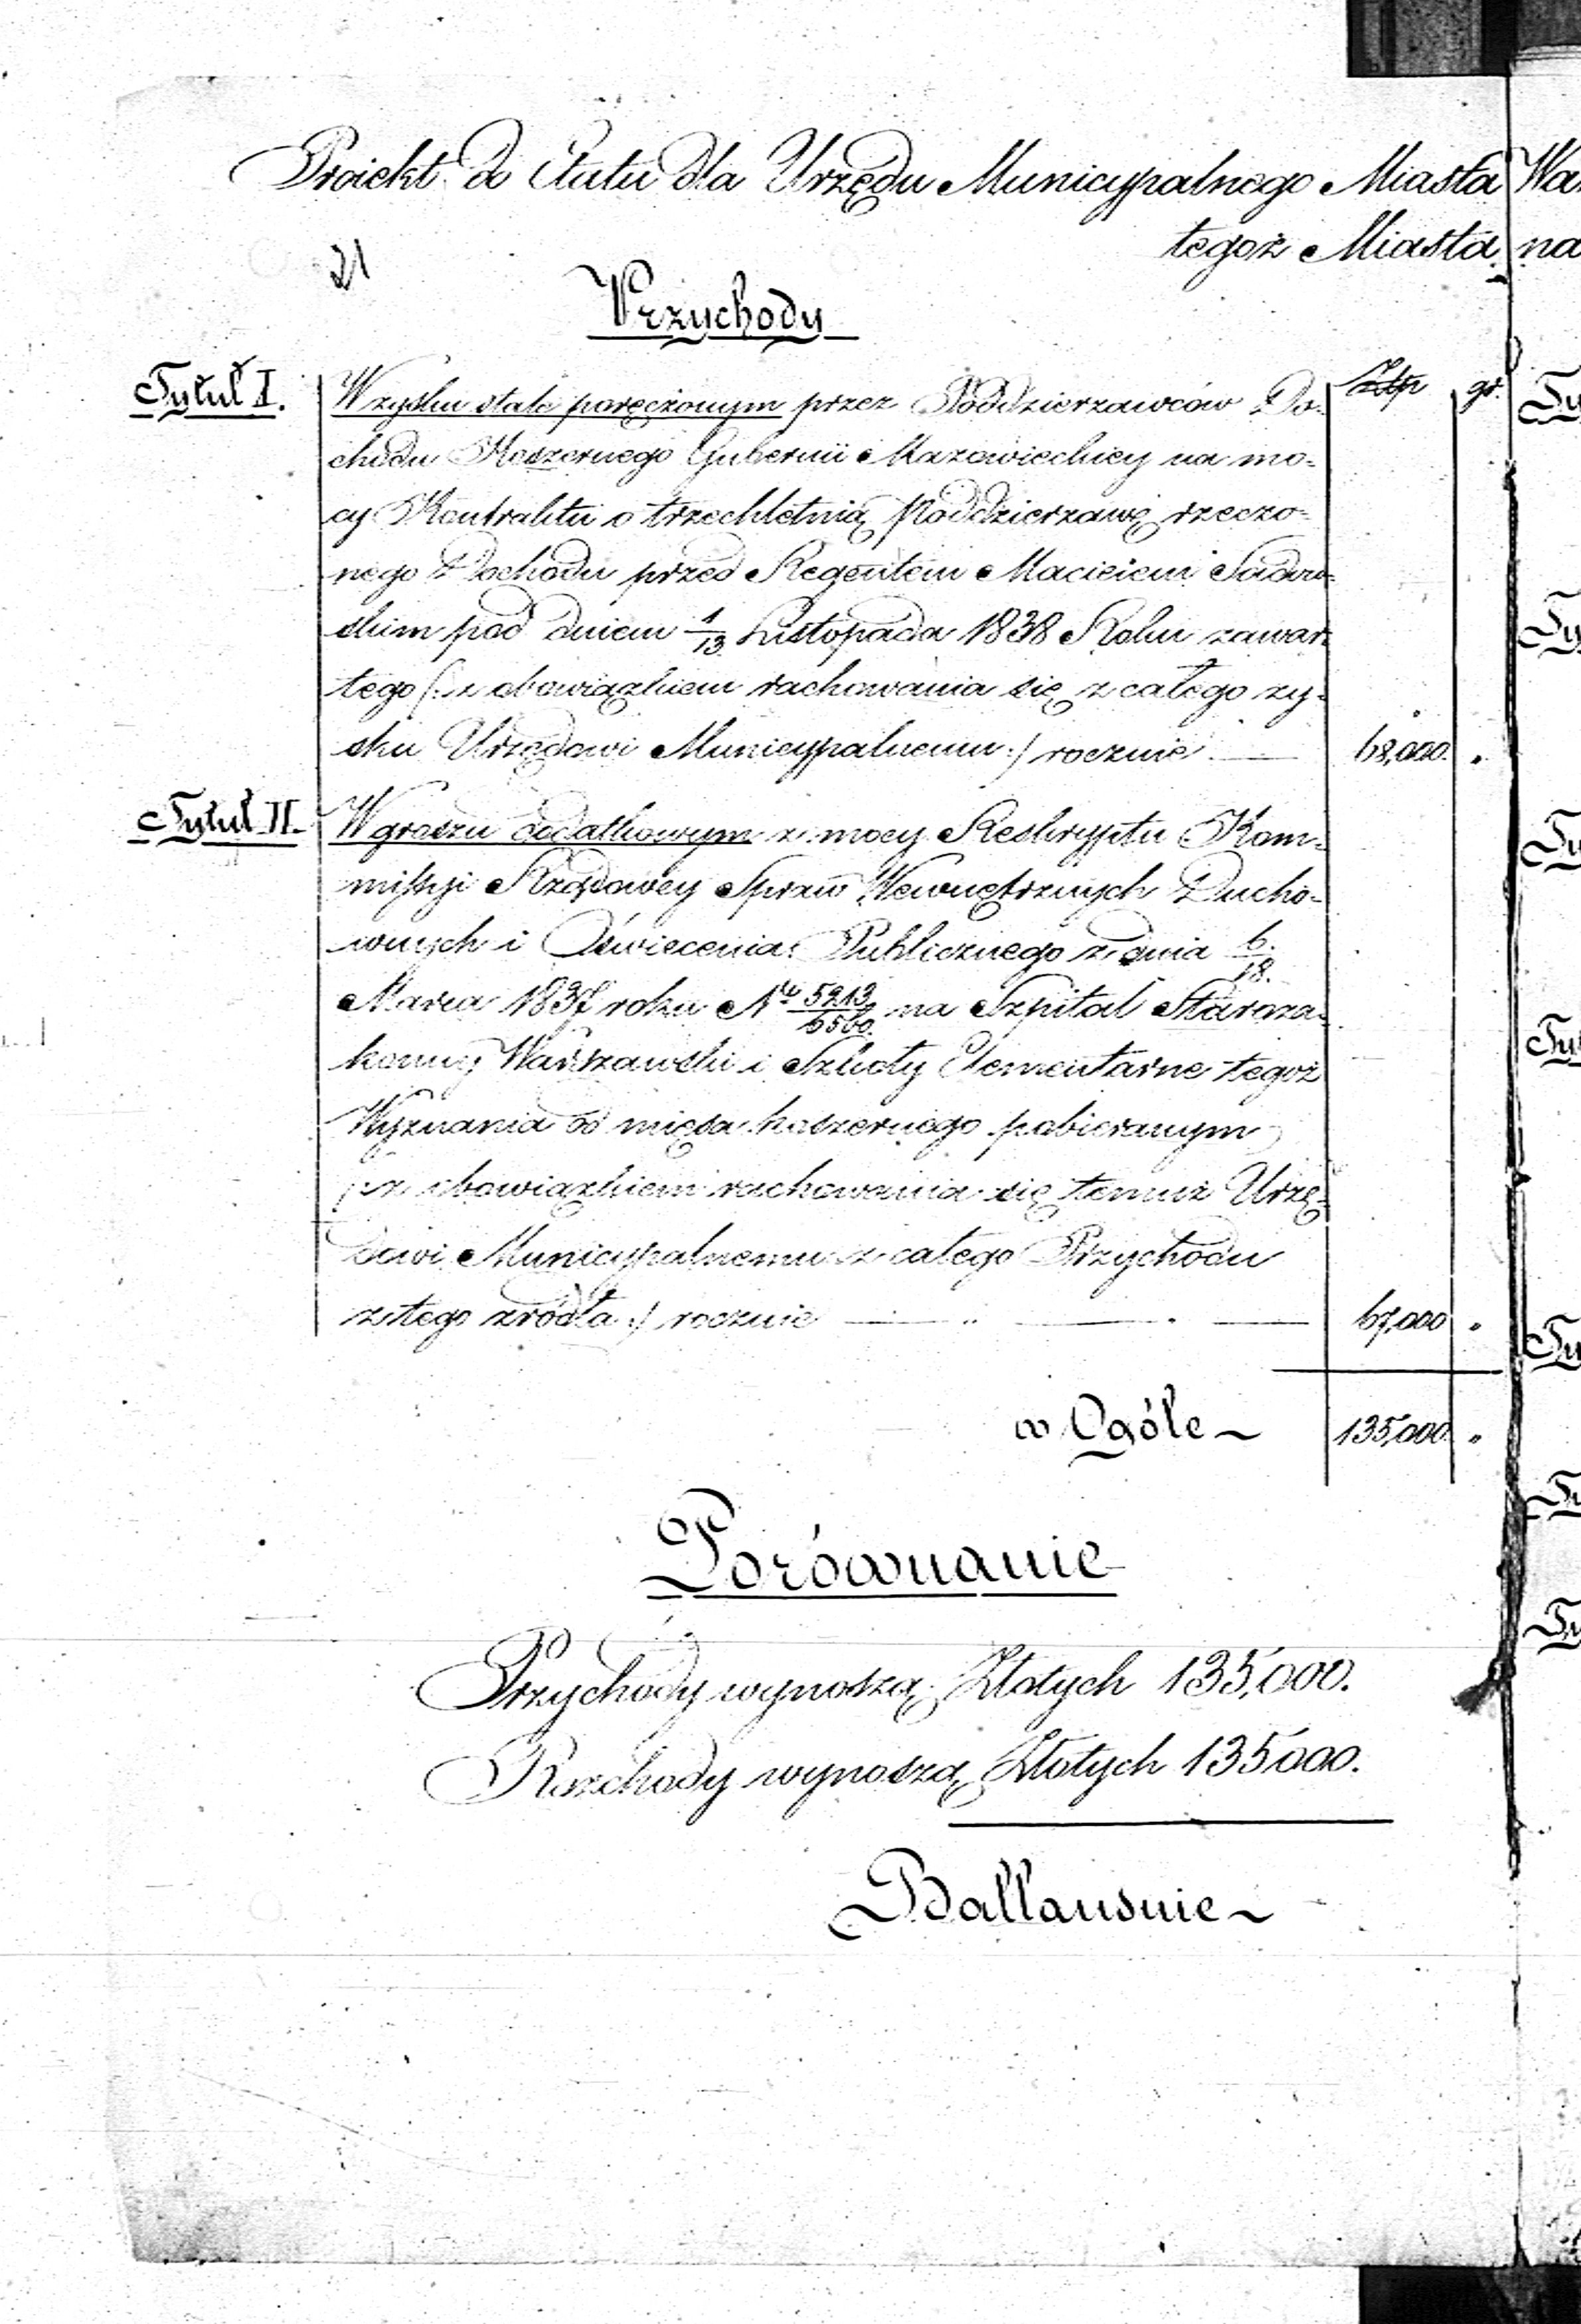 Proiekt do Etatu dla Urzędu Municypalnego Miasta Wa
tegoż Miasta na
21
Przychody
Złp gr.
Tytuł I. W zysku stale poręczonym przez Poddzierżawców Do-
chodu Koszernego Gubernii Mazowieckiey na mo-
cy Kontraktu o trzechletnią Poddzierżawę rzeczo-
nego Dochodu przed Regentem Macieiem
skim pod dniem 1/13 Listopada 1838 Roku zawar-
tego (: z obowiązkiem rachowania się z całego zy-
sku Urzędowi Municypalnemu :) rocznie — 68,000. "
Tytuł II. W groszu dodatkowym z mocy Reskryptu Kom-
missyi Rządowey Spraw Wewnętrznych Ducho-
wnych i Oświecenia Publicznego z dnia 6/18.
Marca 1837 roku Nr 5213/6560. na Szpital Staroza-
konny Warszawski i Szkoły Elementarne tegoż
Wyznania od mięsa koszernego pobieranym
(: z obowiązkiem rachowania się temuż Urzę-
dowi Municypalnemu z całego Przychodu
z tego źródła :) rocznie — " — " — 67,000 "
w Ogóle 135,000. "
Porównanie
Przychody wynoszą Złotych 135,000.
Rozchody wynoszą Złotych 135000.
Ballansuie
Ty
Ty
Ty
Ty
Ty
Ty
Ty